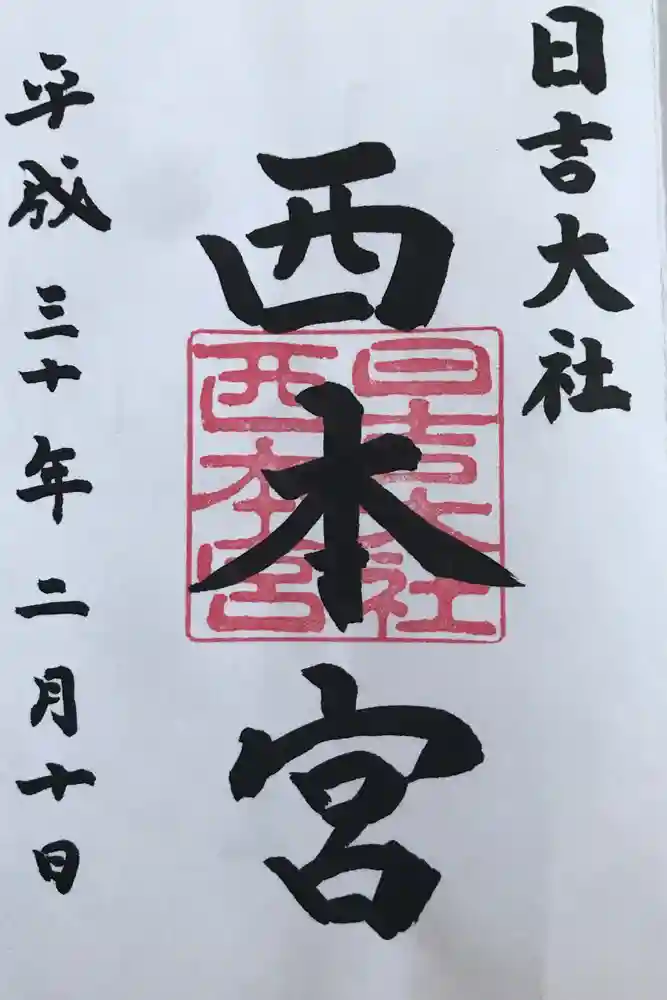 日吉大社
西本宮
日吉大社
西本宮
平成三十年二月十日